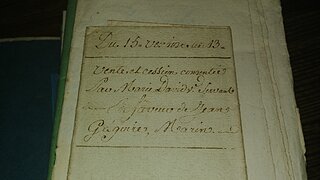 Du 15. an 13.
vente et cession consentie
Par Marie David
En faveur de Jean
Grégoire, Marin